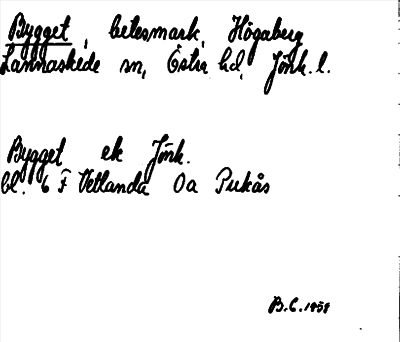 Bygget, betesmark, Högaberg
Lannaskede sn, Östra hd, Jönk. l.
Bygget ek Jönk.
bl. 6 F Vetlanda 0a Pukås
B.C. 1959